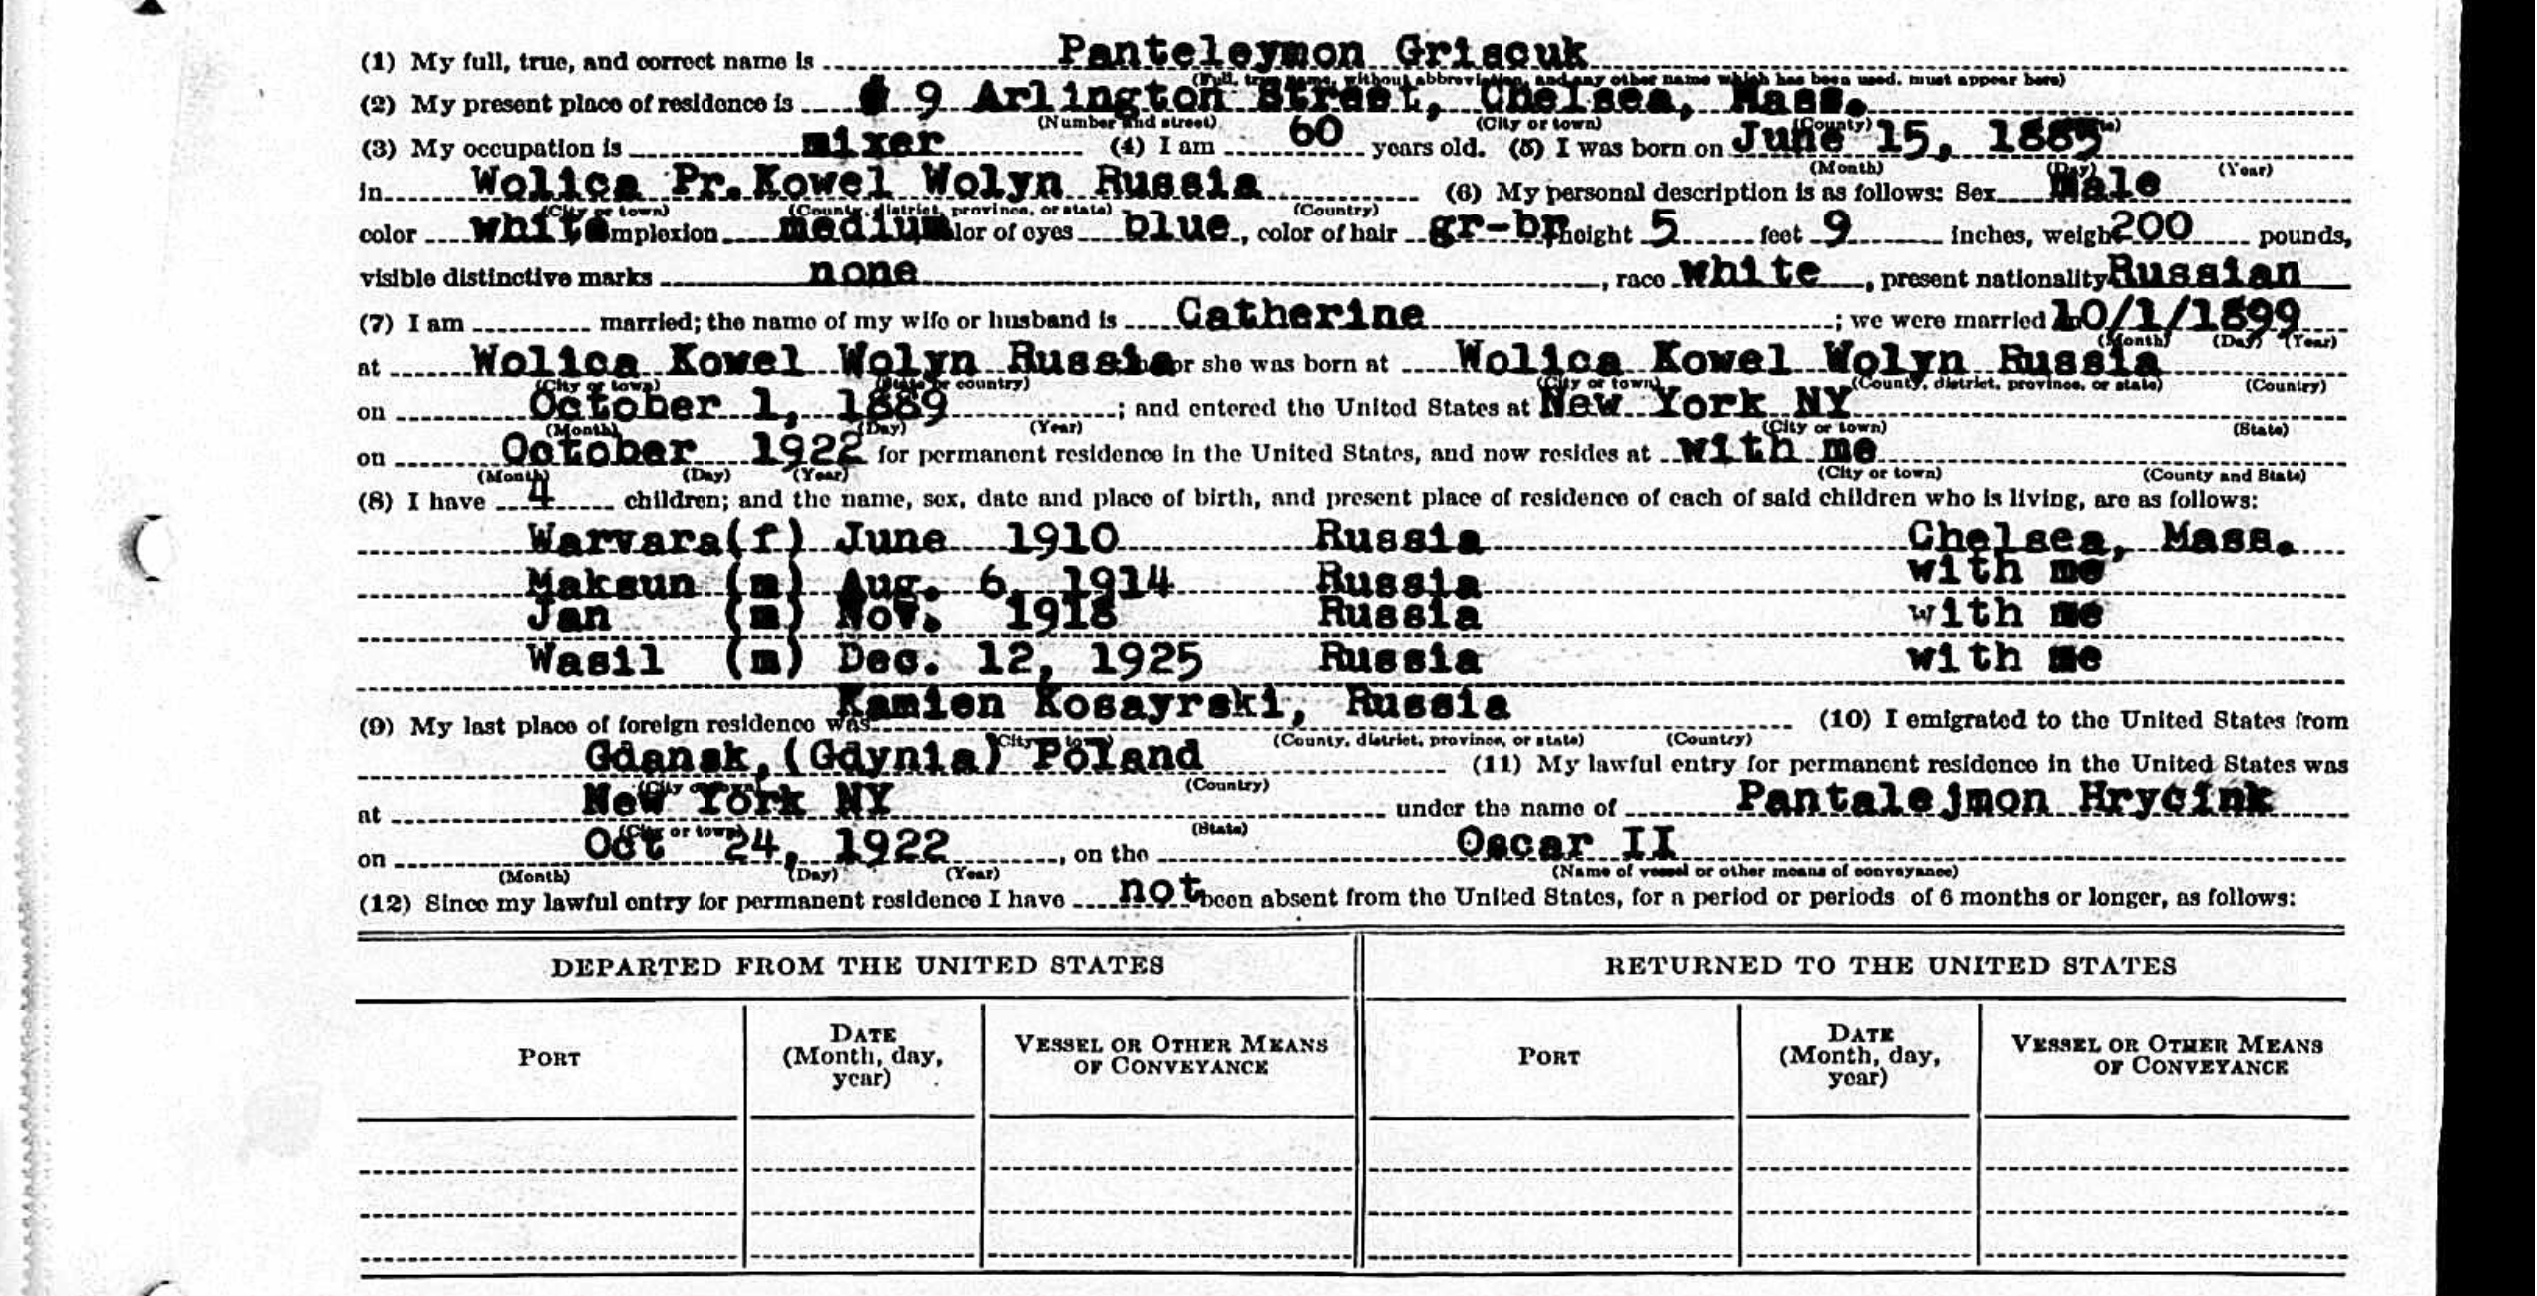 (1) My full, true, and correct name is Panteleymon Griscuk
(Full, true name, without abbreviation, and any other name which has been used, must appear here)
(2) My present place of residence is # 9 Arlington Street, Chelsea, Mass.
(Number and street) (City or town) (County)
(3) My occupation is mixer (4) I am 60 years old. (5) I was born on June 15, 1885
(Month) (Day) (Year)
in Wolica Pr. Kowel Wolyn Russia (6) My personal description is as follows: Sex Male
(City or town) (County, district, province, or state) (Country)
color white complexion medium color of eyes blue, color of hair gr-br height 5 feet 9 inches, weight 200 pounds,
visible distinctive marks none, race white, present nationality Russian
(7) I am married; the name of my wife or husband is Catherine; we were married 10/1/1899
(Month) (Day) (Year)
at Wolica Kowel Wolyn Russia or she was born at Wolica Kowel Wolyn Russia
(City or town) (State or country) (City or town) (County, district, province, or state) (Country)
on October 1, 1889; and entered the United States at New York NY
(Month) (Day) (Year) (City or town) (State)
on October 1922 for permanent residence in the United States, and now resides at with me
(Month) (Day) (Year) (City or town) (County and State)
(8) I have 4 children; and the name, sex, date and place of birth, and present place of residence of each of said children who is living, are as follows:
Warvara(f) June 1910 Russia Chelsea, Mass.
Maksun (m) Aug. 6, 1914 Russia with me
Jan (m) Nov. 1918 Russia with me
Wasil (m) Dec. 12, 1925 Russia with me
(9) My last place of foreign residence was Kamien Kosayrski, Russia (10) I emigrated to the United States from
(City or town) (County, district, province, or state) (Country)
Gdansk,(Gdynia) Poland (11) My lawful entry for permanent residence in the United States was
(City or town) (Country)
at New York NY under the name of Pantalejmon Hrycink
(City or town) (State)
on Oct 24, 1922, on the Oscar II
(Month) (Day) (Year) (Name of vessel or other means of conveyance)
(12) Since my lawful entry for permanent residence I have not been absent from the United States, for a period or periods of 6 months or longer, as follows:
DEPARTED FROM THE UNITED STATES RETURNED TO THE UNITED STATES
PORT DATE (Month, day, year) VESSEL OR OTHER MEANS OF CONVEYANCE PORT DATE (Month, day, year) VESSEL OR OTHER MEANS OF CONVEYANCE